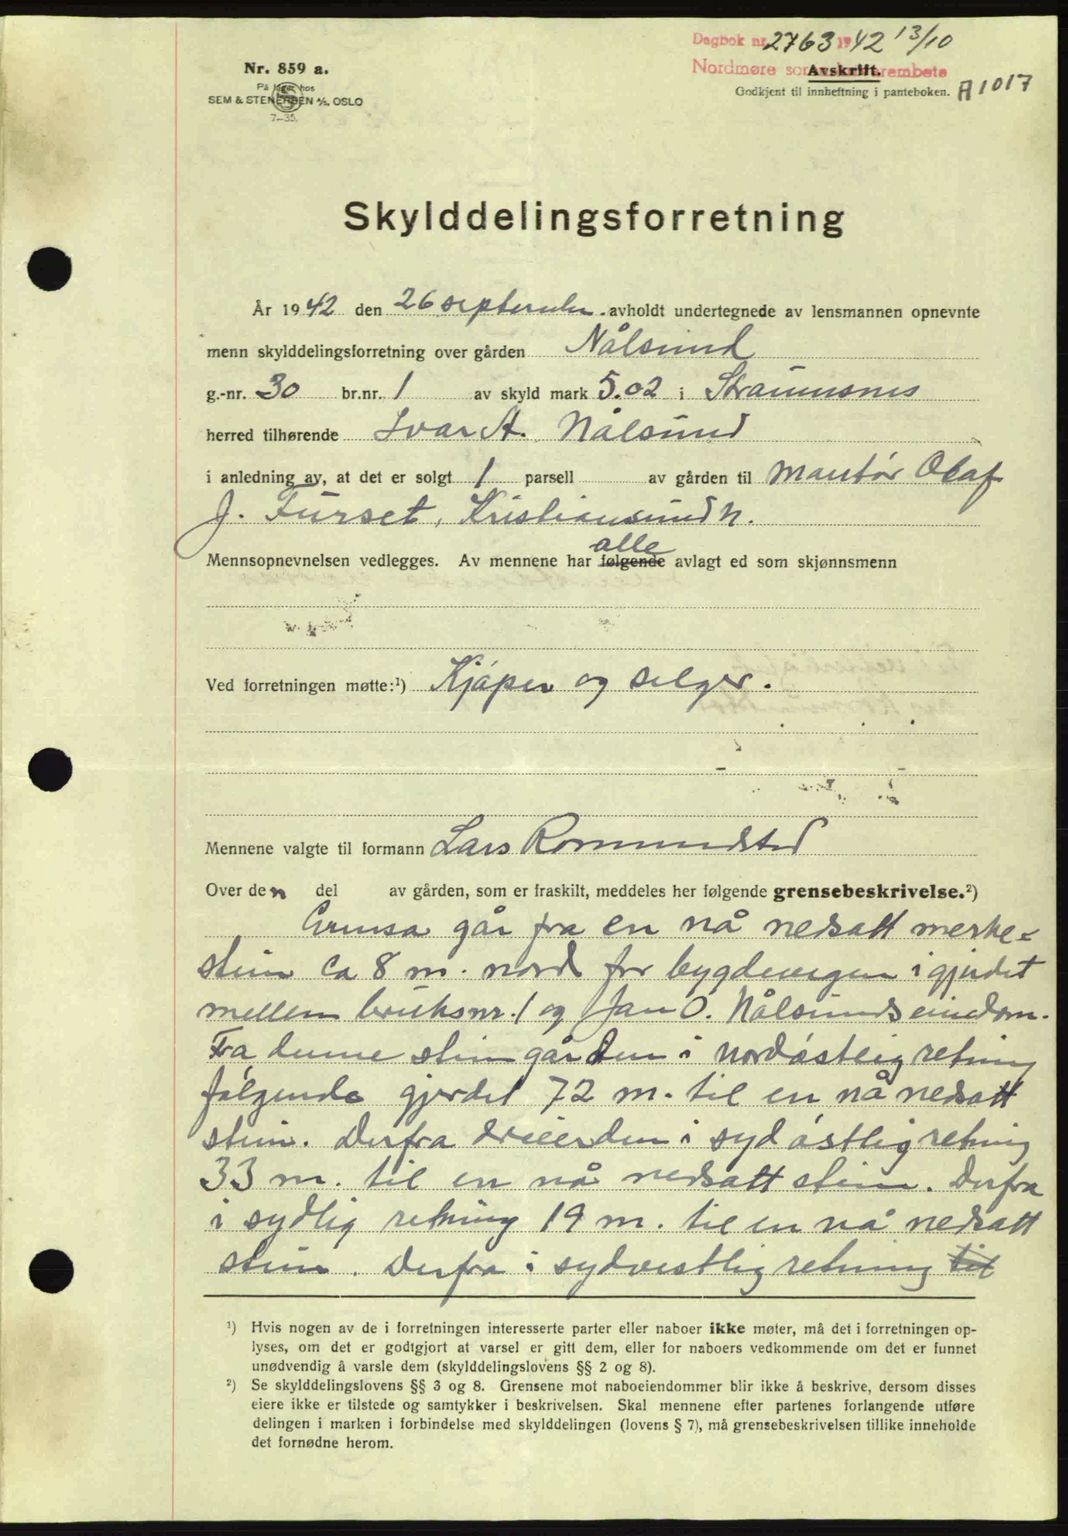 Dagbok nr. 2763 1942 13/10
Nordmøre sorenskriverembete
Avskrift.
Godkjent til innheftning i panteboken. A 1017
Nr. 859 a.
På lager hos
SEM & STENERSEN A/S, OSLO
7–35.
Skylddelingsforretning
År 1942 den 26 september avholdt undertegnede av lensmannen opnevnte
menn skylddelingsforretning over gården Nålsund
g.-nr. 30 br.nr. 1 av skyld mark 5.02 i Straumsnes
herred tilhørende Ivar A. Nålsund
i anledning av, at det er solgt 1 parsell av gården til Montør Olaf
J. Furset, Kristiansund N.
alle
Mennsopnevnelsen vedlegges. Av mennene har følgende avlagt ed som skjønnsmenn
Ved forretningen møtte:¹) Kjøper og selger.
Mennene valgte til formann Lars Rommundstad
Over den del av gården, som er fraskilt, meddeles her følgende grensebeskrivelse.²)
Grensa går fra en nå nedsatt merke-
stein ca 8 m. nord for bygdevegen i gjerdet
mellem bruksnr. 1 og Jan O. Nålsunds eiendom.
Fra denne stein går den i nordøstlig retning
følgende gjerdet 72 m. til en nå nedsatt
stein. Derfra dreier den i sydøstlig retning
33 m. til en nå nedsatt stein. Derfra
i sydlig retning 19 m. til en nå nedsatt
stein. Derfra i sydvestlig retning til
¹) Hvis nogen av de i forretningen interesserte parter eller naboer ikke møter, må det i forretningen op-
lyses, om det er godtgjort at varsel er gitt dem, eller for naboers vedkommende om det er funnet
unødvendig å varsle dem (skylddelingslovens §§ 2 og 8).
²) Se skylddelingslovens §§ 3 og 8. Grensene mot naboeiendommer blir ikke å beskrive, dersom disses
eiere ikke er tilstede og samtykker i beskrivelsen. Skal mennene efter partenes forlangende utføre
delingen i marken i forbindelse med skylddelingen (lovens § 7), må grensebeskrivelsen tillike inneholde
det fornødne herom.